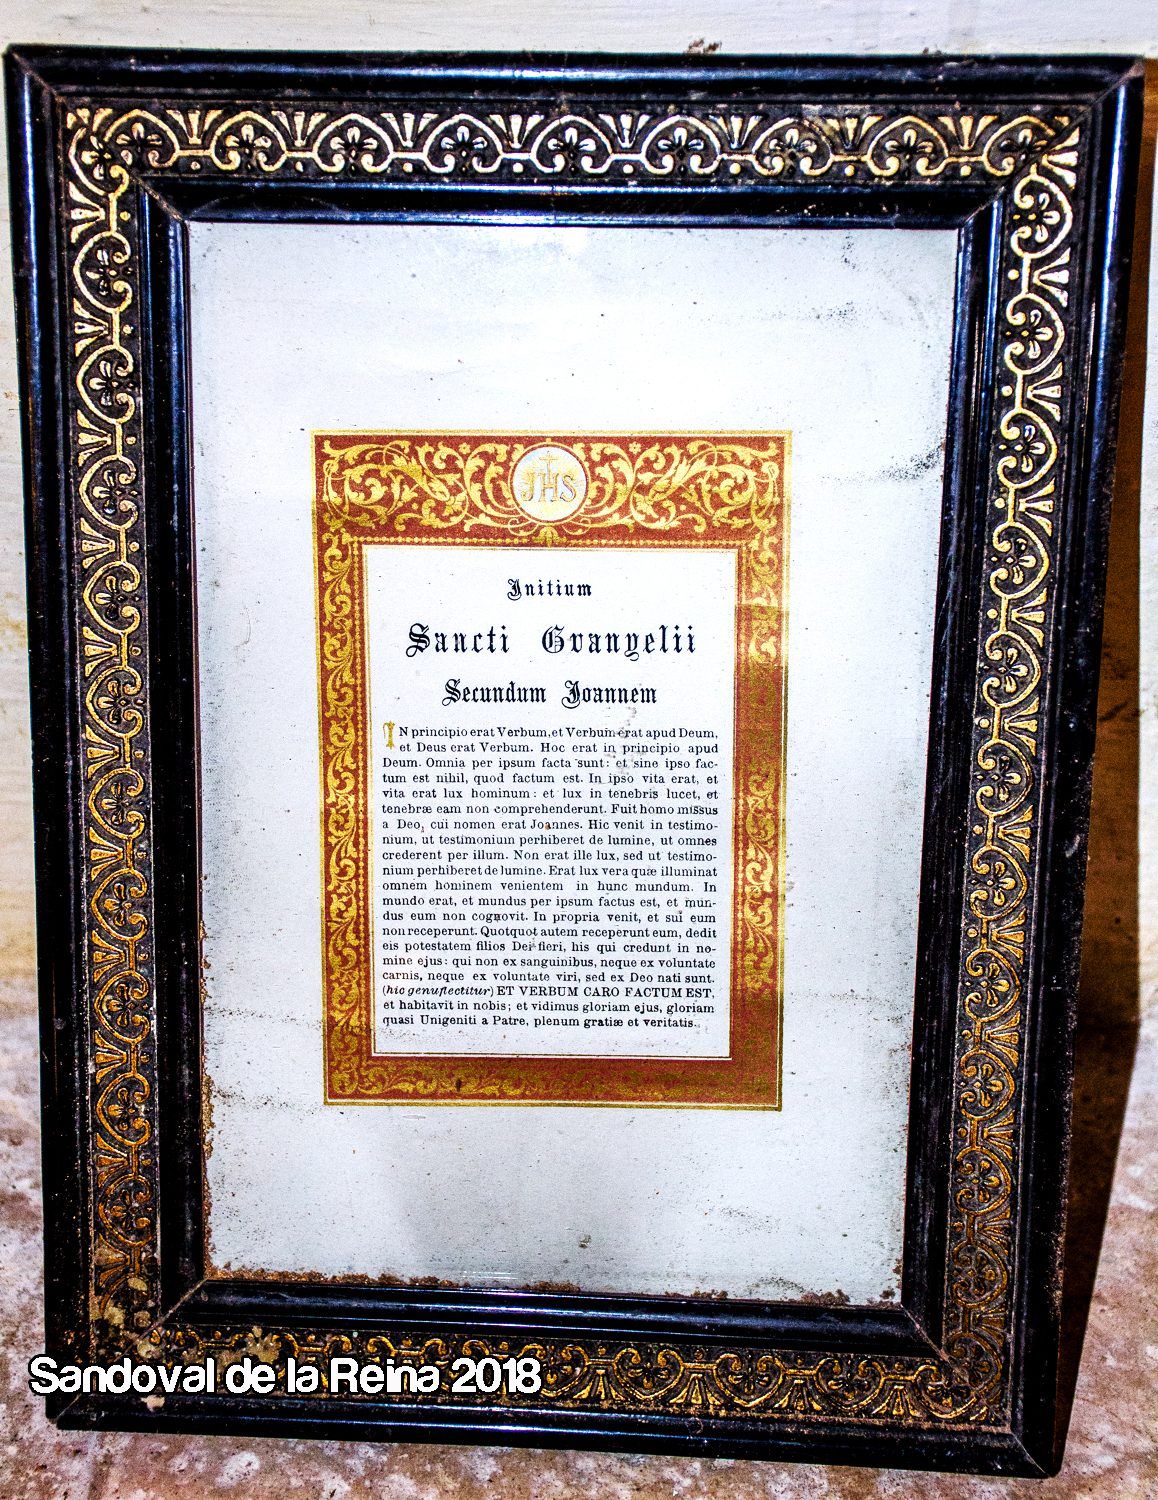 JHS
Initium
Sancti Evangelii
Secundum Joannem
IN principio erat Verbum, et Verbum erat apud Deum,
et Deus erat Verbum. Hoc erat in principio apud
Deum. Omnia per ipsum facta sunt: et sine ipso fac-
tum est nihil, quod factum est. In ipso vita erat, et
vita erat lux hominum: et lux in tenebris lucet, et
tenebræ eam non comprehenderunt. Fuit homo missus
a Deo, cui nomen erat Joannes. Hic venit in testimo-
nium, ut testimonium perhiberet de lumine, ut omnes
crederent per illum. Non erat ille lux, sed ut testimo-
nium perhiberet de lumine. Erat lux vera quæ illuminat
omnem hominem venientem in hunc mundum. In
mundo erat, et mundus per ipsum factus est, et mun-
dus eum non cognovit. In propria venit, et sui eum
non receperunt. Quotquot autem receperunt eum, dedit
eis potestatem filios Dei fieri, his qui credunt in no-
mine ejus: qui non ex sanguinibus, neque ex voluntate
carnis, neque ex voluntate viri, sed ex Deo nati sunt.
(hic genuflectitur) ET VERBUM CARO FACTUM EST,
et habitavit in nobis; et vidimus gloriam ejus, gloriam
quasi Unigeniti a Patre, plenum gratiæ et veritatis.
Sandoval de la Reina 2018